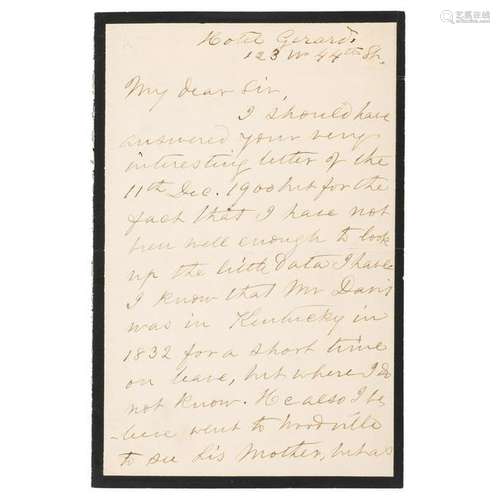 Hotel Gerard.
123 W 44th St.
My dear Sir,
I should have
answered your very
interesting letter of the
11th Dec. 1900 but for the
fact that I have not
been well enough to look
up the little data I have
I know that Mr Davis
was in Kentucky in
1832 for a short time
on leave, but where I do
not know. He also I be
-lieve went to Woodville
to see his Mother, but as